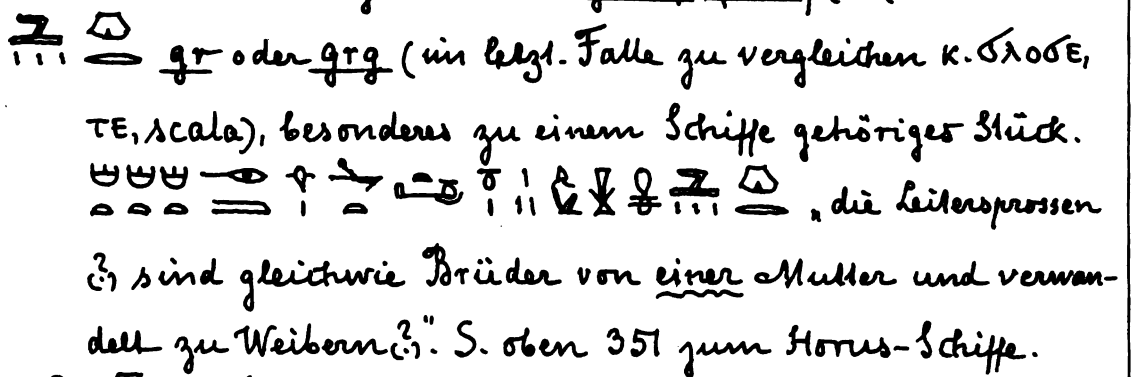 gr oder grg (im letzt. Falle zu vergleichen κ. ϭλοϭε,
τε, scala), besonderes zu einem Schiffe gehöriges Stück.
„die Leitersprossen
(?) sind gleichwie Brüder von einer Mutter und verwan-
delt zu Weibern(?)". S. oben 351 zum Horus-Schiffe.